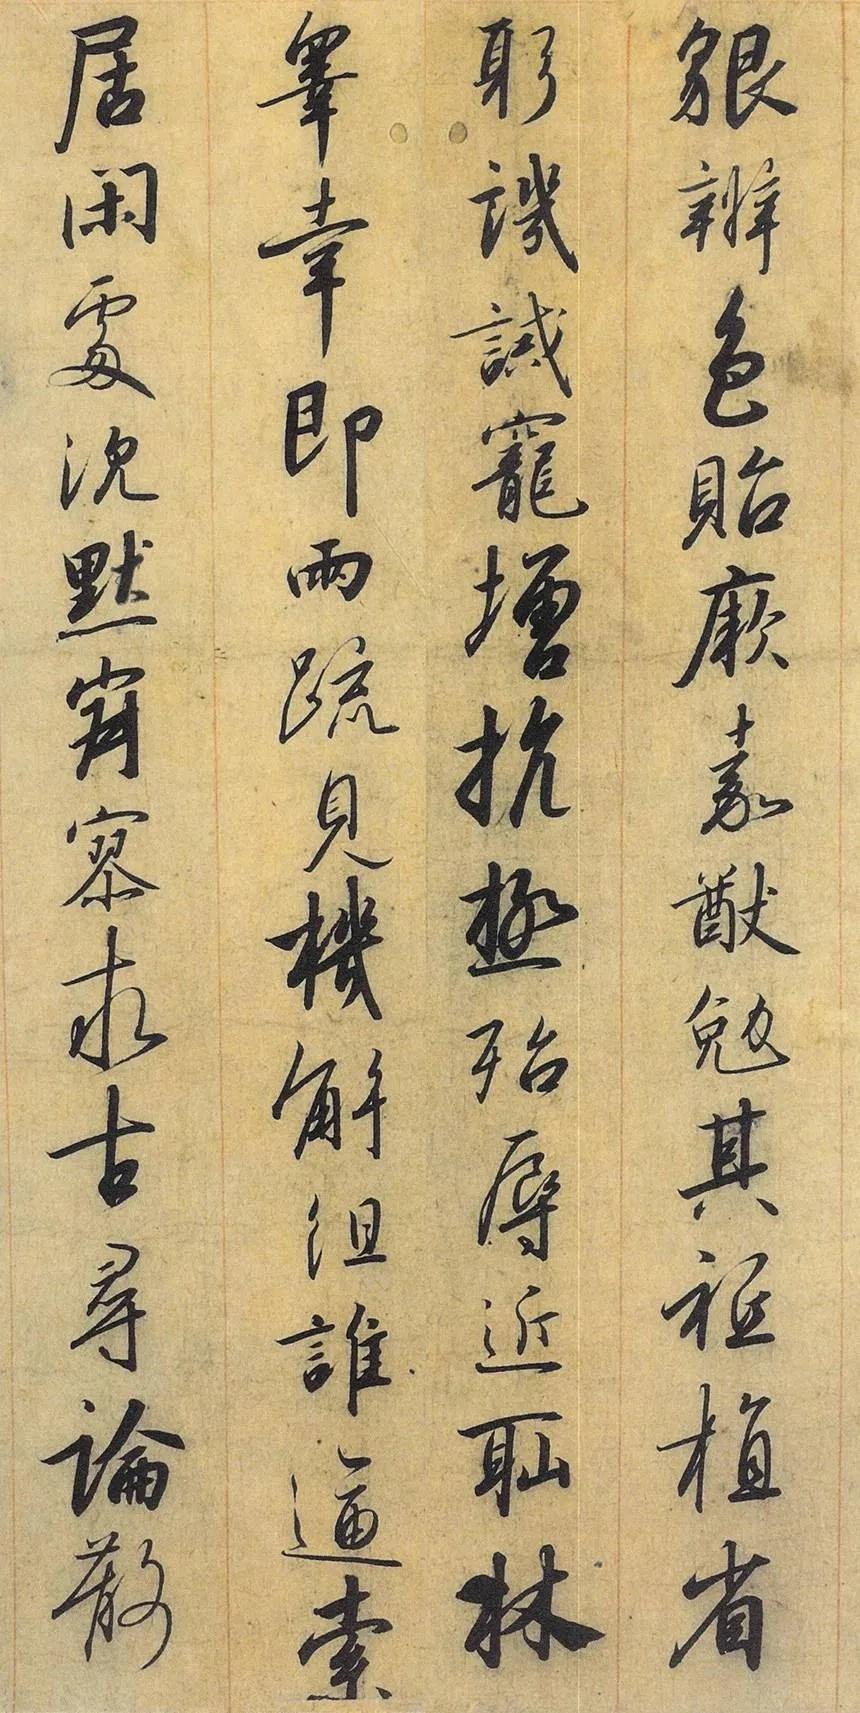 貌辨色貽厥嘉猷勉其祗植省
躬譏誡寵增抗極殆辱近恥林
睪幸即兩疏見機解組誰逼索
居閑處沉默寂寥求古尋論散